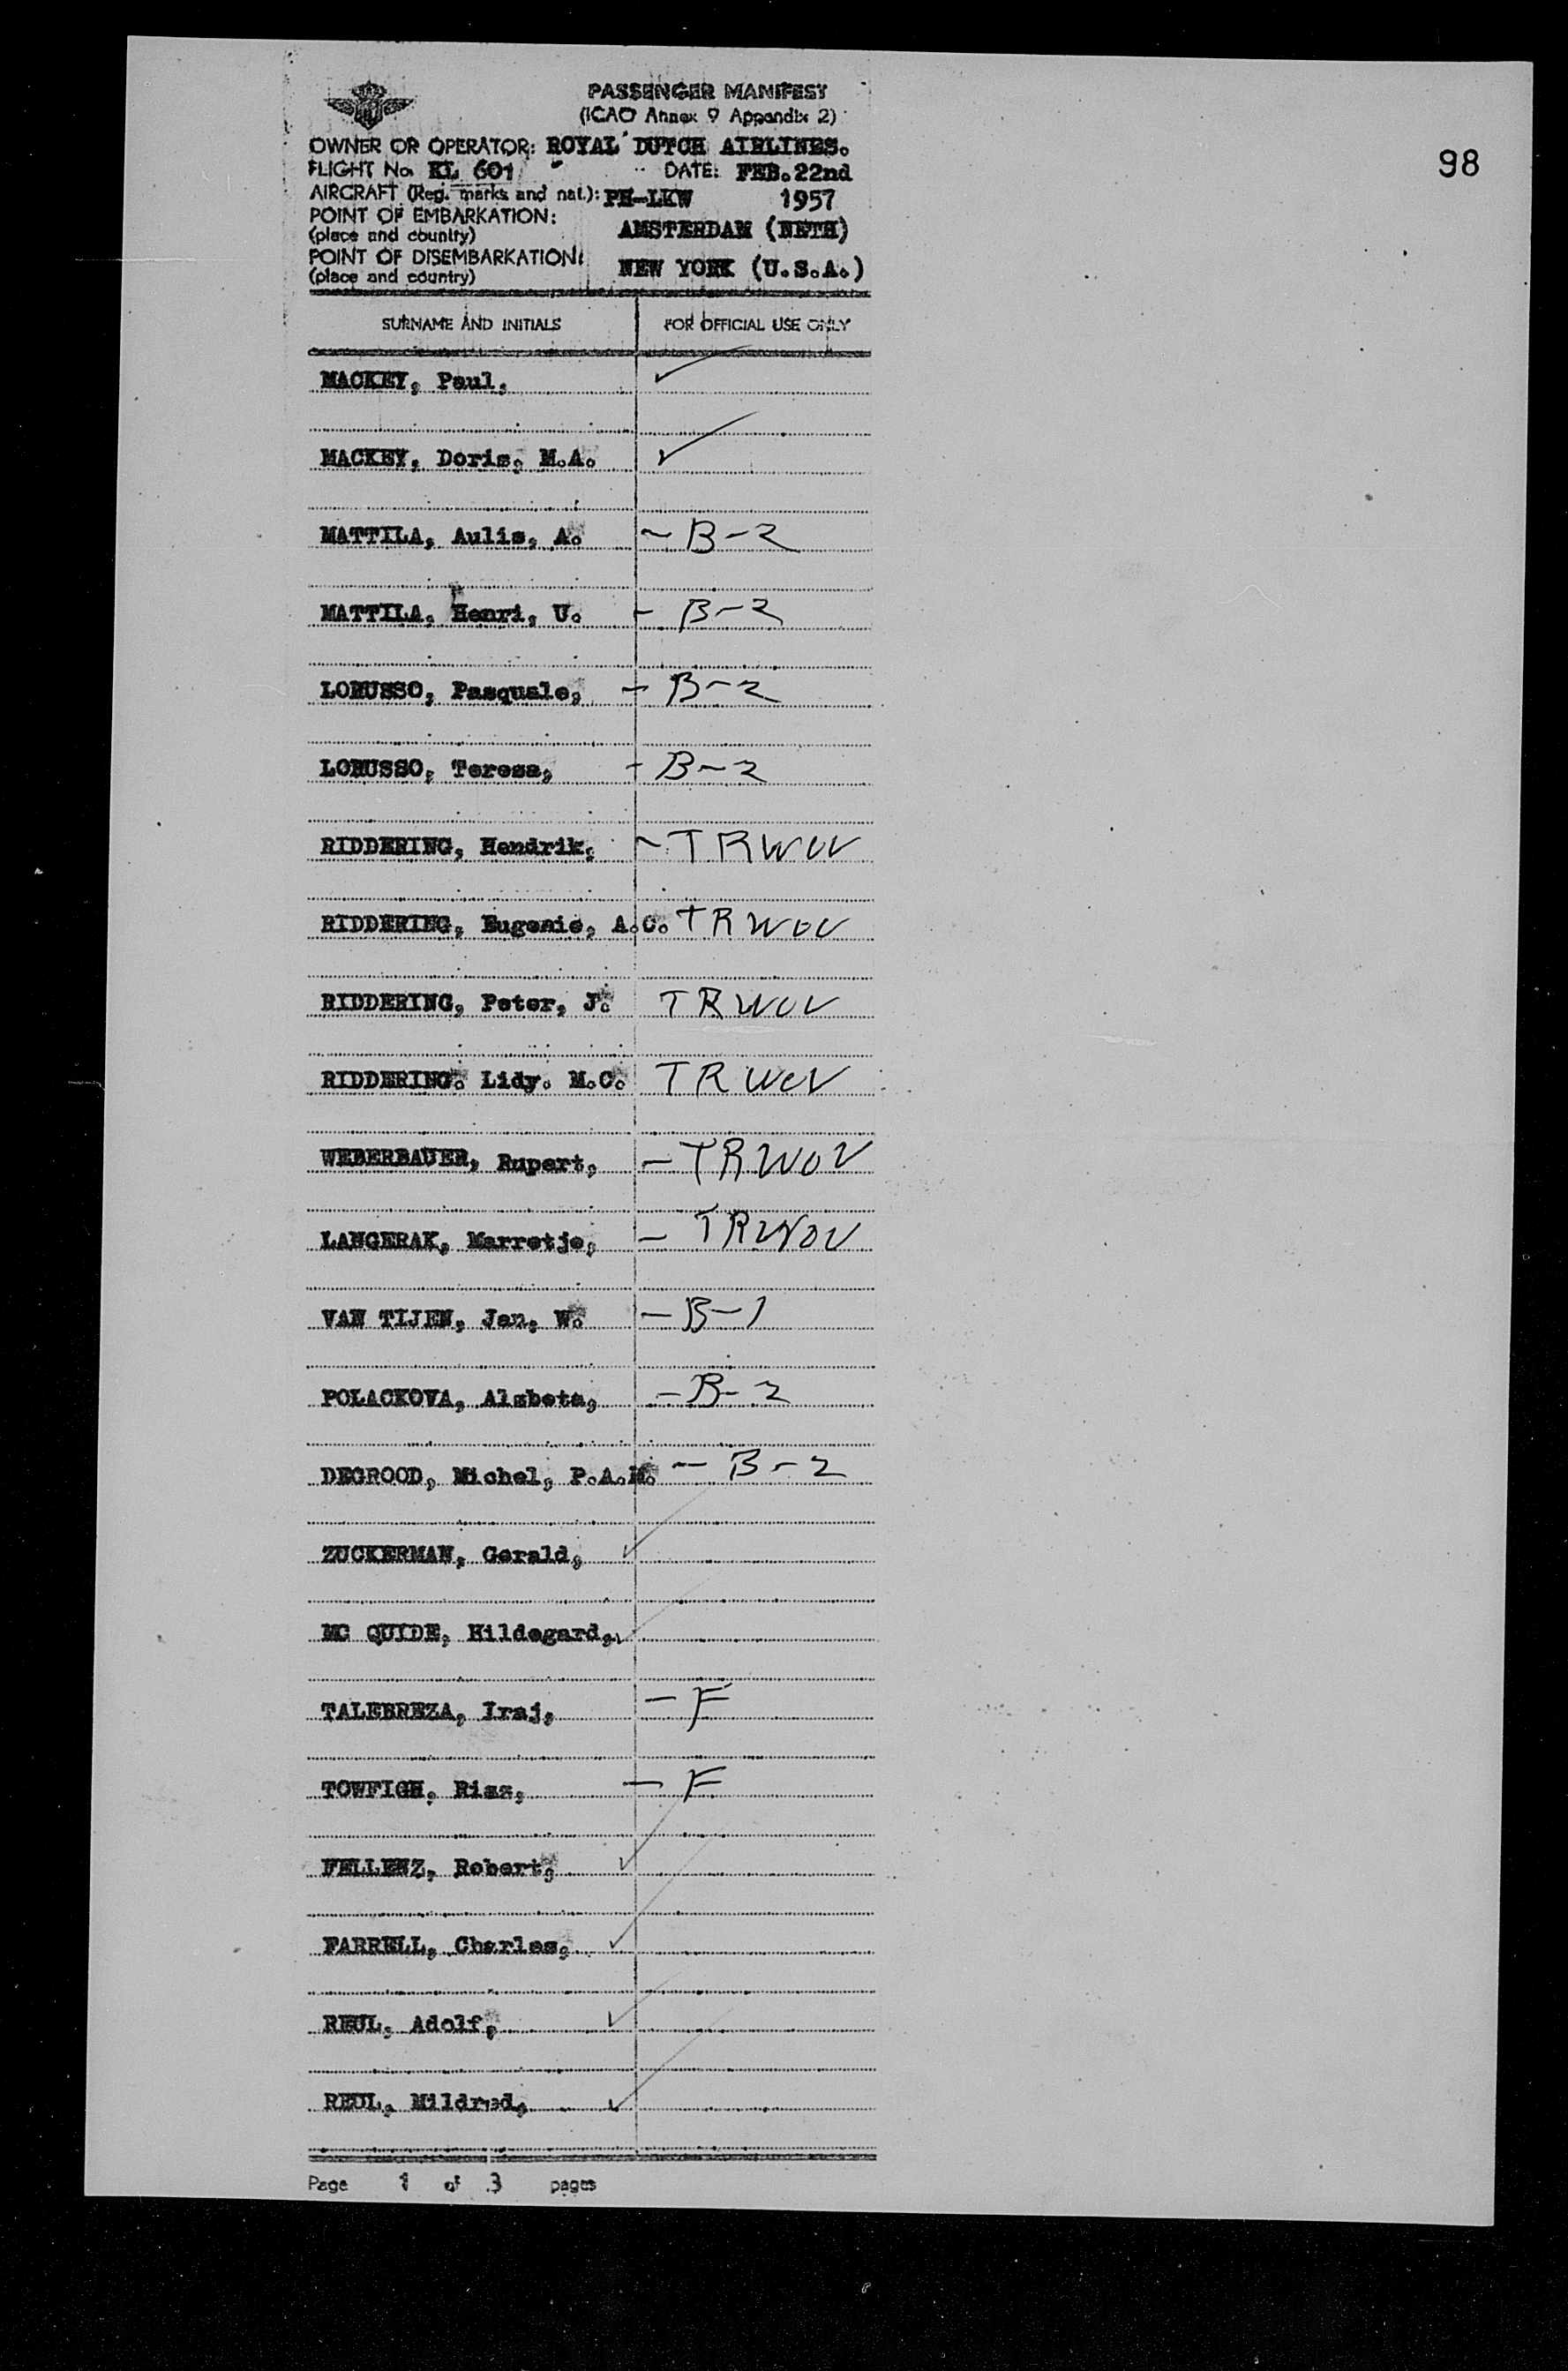 98
PASSENGER MANIFEST
(ICAO Annex 9 Appendix 2)
OWNER OR OPERATOR: ROYAL DUTCH AIRLINES.
FLIGHT No. KL 601 DATE: FEB. 22nd
AIRCRAFT (Reg. marks and nat.): PH-LKW 1957
POINT OF EMBARKATION:
(place and country) AMSTERDAM (NETH)
POINT OF DISEMBARKATION:
(place and country) NEW YORK (U.S.A.)
SURNAME AND INITIALS FOR OFFICIAL USE ONLY
MACKEY, Paul, ✓
MACKEY, Doris, M.A. ✓
MATTILA, Aulis, A. - B-2
MATTILA, Henri, U. - B-2
LORUSSO, Pasquale, - B-2
LORUSSO, Teresa, - B-2
RIDDERING, Hendrik, - TRWOV
RIDDERING, Eugenie, A.C. TRWOV
RIDDERING, Peter, J. TRWOV
RIDDERING. Lidy. M.C. TRWOV
WEBERBAUER, Rupert, - TRWOV
LANGERAK, Marretje, - TRWOV
VAN TIJEN, Jan, W. - B-1
POLACKOVA, Alzbeta, - B-2
DEGROOD, Michel, P.A.M. - B-2
ZUCKERMAN, Gerald, ✓
MC QUIDE, Hildegard, ✓
TALEBREZA, Iraj, - F
TOWFIGH, Riaz, - F
FELLENZ, Robert, ✓
FARRELL, Charles, ✓
REUL, Adolf, ✓
REUL, Mildred, ✓
Page 1 of 3 pages